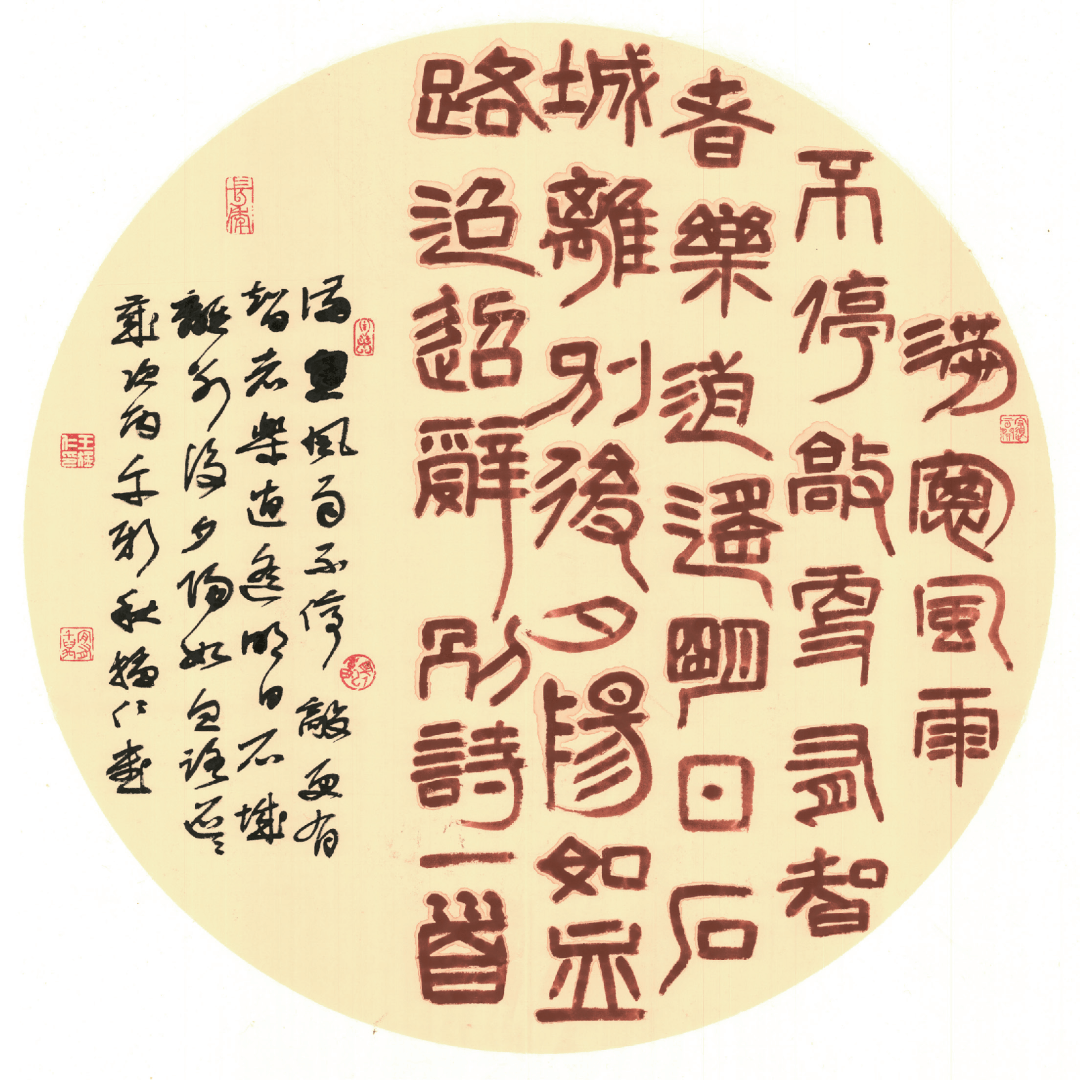 滿窗風雨
不停敲更有智
者樂逍遥明日石
城離別後夕陽如血
路迢迢辭別詩一首
满窗風雨不停敲更有
智者樂逍遥明日石城
離別後夕陽如血路迢々
歲次丙午新秋播仁書